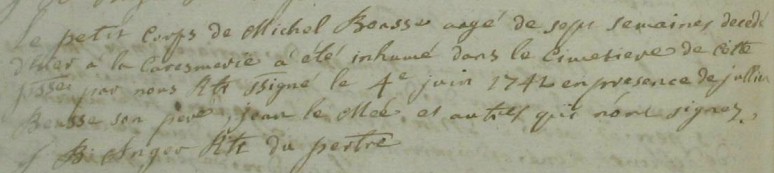 Le petit Corps de Michel Beusse aagé de sept semaines decedé
d'hier a la Caresmerie a été inhumé dans le Cimetiere de cette
psse par nous Rtr ssigné le 4e juin 1742 en presence de jullien
Beusse son pere, jean le Mée et autres qui n'ont signez,
B: Anger Rtr du pertre